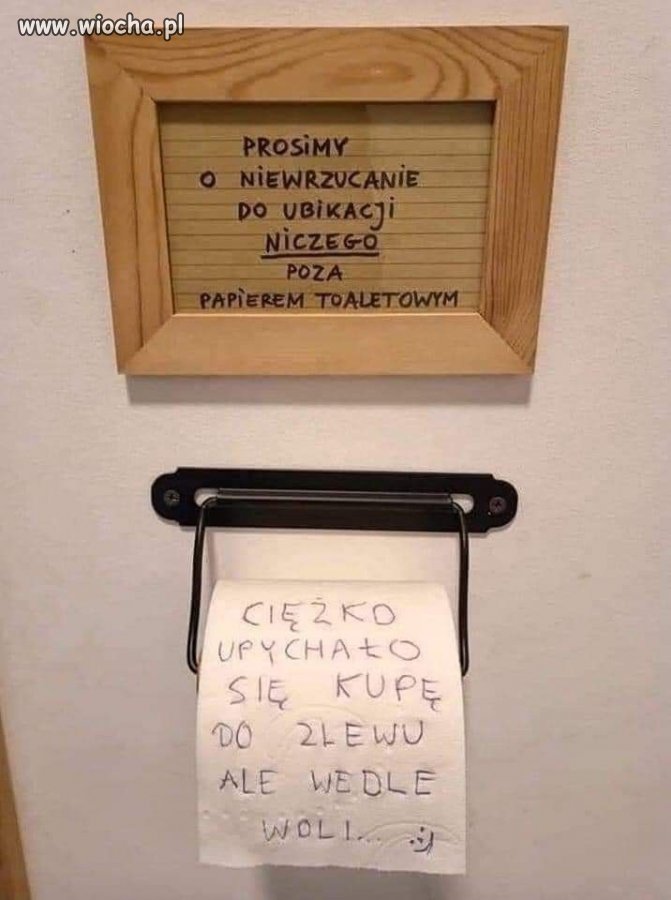 www.wiocha.pl
PROSiMY
O NiEWRZUCANIE
DO UBiKACji
NiCZEGO
POZA
PAPiEREM TOALETOWYM
CIĘŻKO
UPYCHAŁO
SIĘ KUPĘ
DO ZLEWU
ALE WEDLE
WOLI... :)